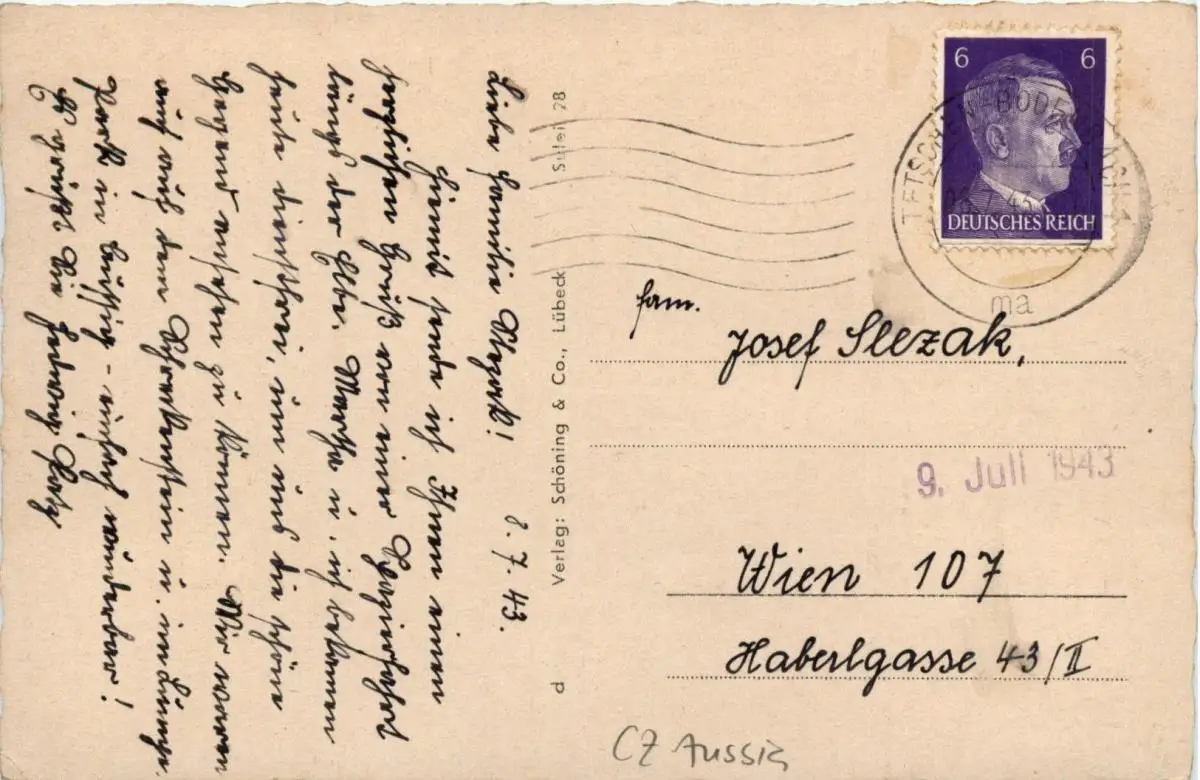 Liebe Familie Slezak! 8.7.43.
Hiemit sende ich Ihnen einen
herzlichen Gruß von einer Spazierfahrt
längs der Elbe. Martha u. ich bekamen
heute dienstfrei, um uns die schöne
Gegend ansehen zu können. Wir waren
auch auf dem Schreckenstein u. im
Park in Aussig – einfach wunderbar!
Es grüßt Sie Hedwig
d Verlag: Schöning & Co., Lübeck 28
6 6
DEUTSCHES REICH
TETSCHEN-BODENBACH 1
ma
Fam.
Josef Slezak,
9. Juli 1943
Wien 107
Haberlgasse 43/II
CZ Aussig